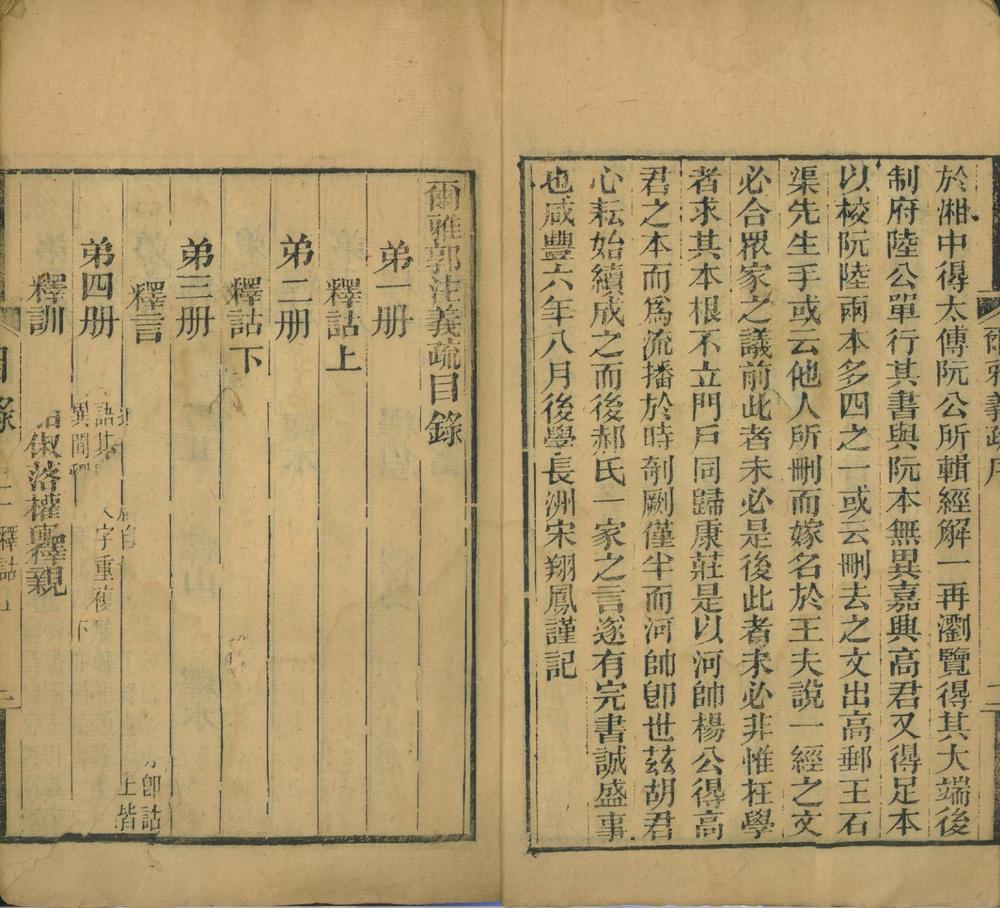 於湘中得太傅阮公所輯經解一再瀏覽得其大端後
制府陸公單行其書與阮本無異嘉興高君又得足本
以校阮陸兩本多四之一或云刪去之文出高郵王石
渠先生手或云他人所刪而嫁名於王夫說一經之文
必合眾家之議前此者未必是後此者未必非惟在學
者求其本根不立門戶同歸康莊是以河帥楊公得高
君之本而為流播於時剞劂僅半而河帥卽世茲胡君
心耘始續成之而後郝氏一家之言遂有完書誠盛事
也咸豐六年八月後學長洲宋翔鳳謹記
爾雅郭注義疏目錄
弟一册
釋詁上
弟二册
釋詁下
弟三册
釋言
弟四册
釋訓
俶落權輿釋親
字重複
卽詁
上皆
目錄